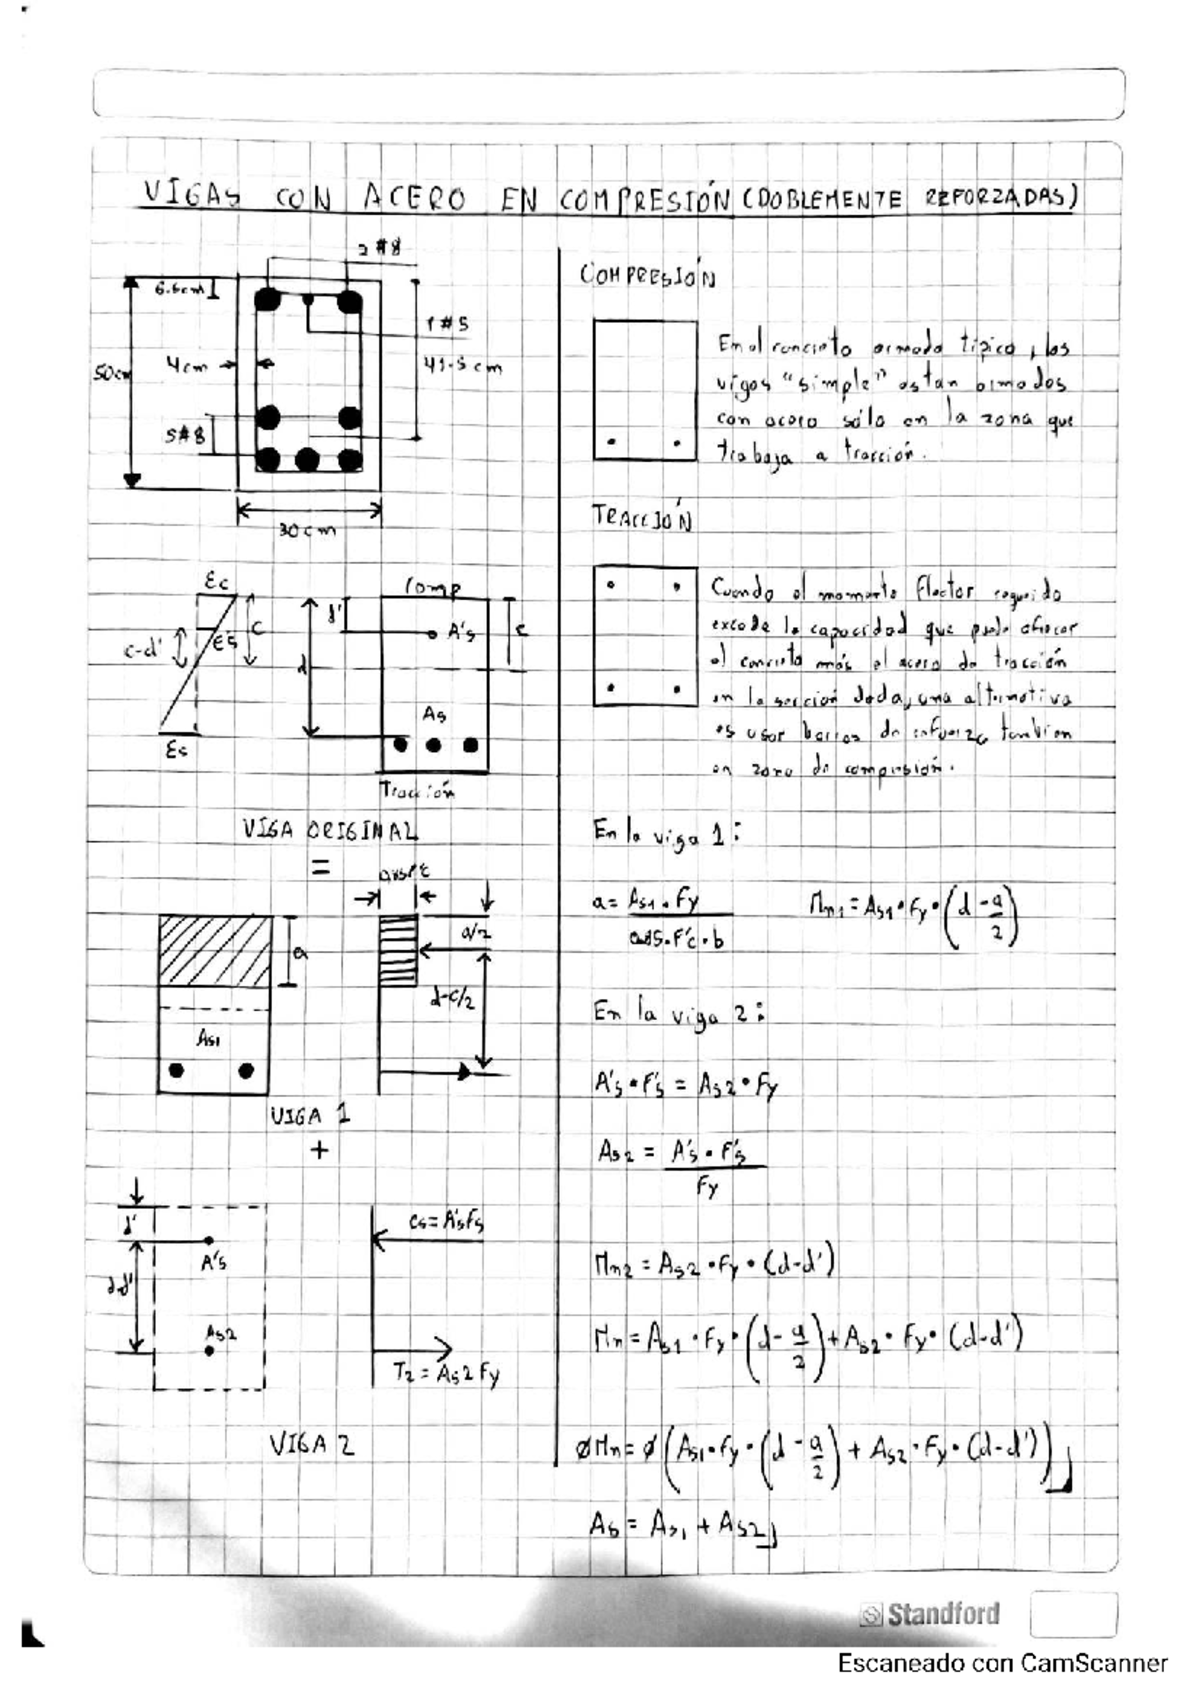 VIGAS CON ACERO EN COMPRESIÓN (DOBLEMENTE REFORZADAS)
2#8
6.5cm
1#5
4cm
41.5cm
50cm
5#8
30cm
Ɛc
c
c-d'
Ɛ's
Ɛs
Comp
d'
A's
c
d
As
Tracción
VIGA ORIGINAL
=
a
a/2
d-c/2
As1
VIGA 1
+
d'
A's
d-d'
As2
Cs=A'sFs
T2=As2Fy
VIGA 2
COMPRESIÓN
En el concreto armado típico, las
vigas "simple" estan armados
con acero sólo en la zona que
trabaja a tracción.
TRACCIÓN
Cuando el momento flector requerido
excede la capacidad que puede ofrecer
el concreto más el acero de tracción
en la sección dada, una alternativa
es usar barras de refuerzo tambien
en zona de compresión.
En la viga 1:
a= As1.Fy / 0.85.F'c.b
Mn1=As1•Fy•(d-a/2)
En la viga 2:
A's•F's = As2•Fy
As2 = A's•F's / Fy
Mn2=As2•Fy•(d-d')
Mn=As1•Fy•(d-a/2)+As2•Fy•(d-d')
ØMn=Ø(As1•Fy•(d-a/2)+As2•Fy•(d-d'))
As=As1+As2
Standford
Escaneado con CamScanner